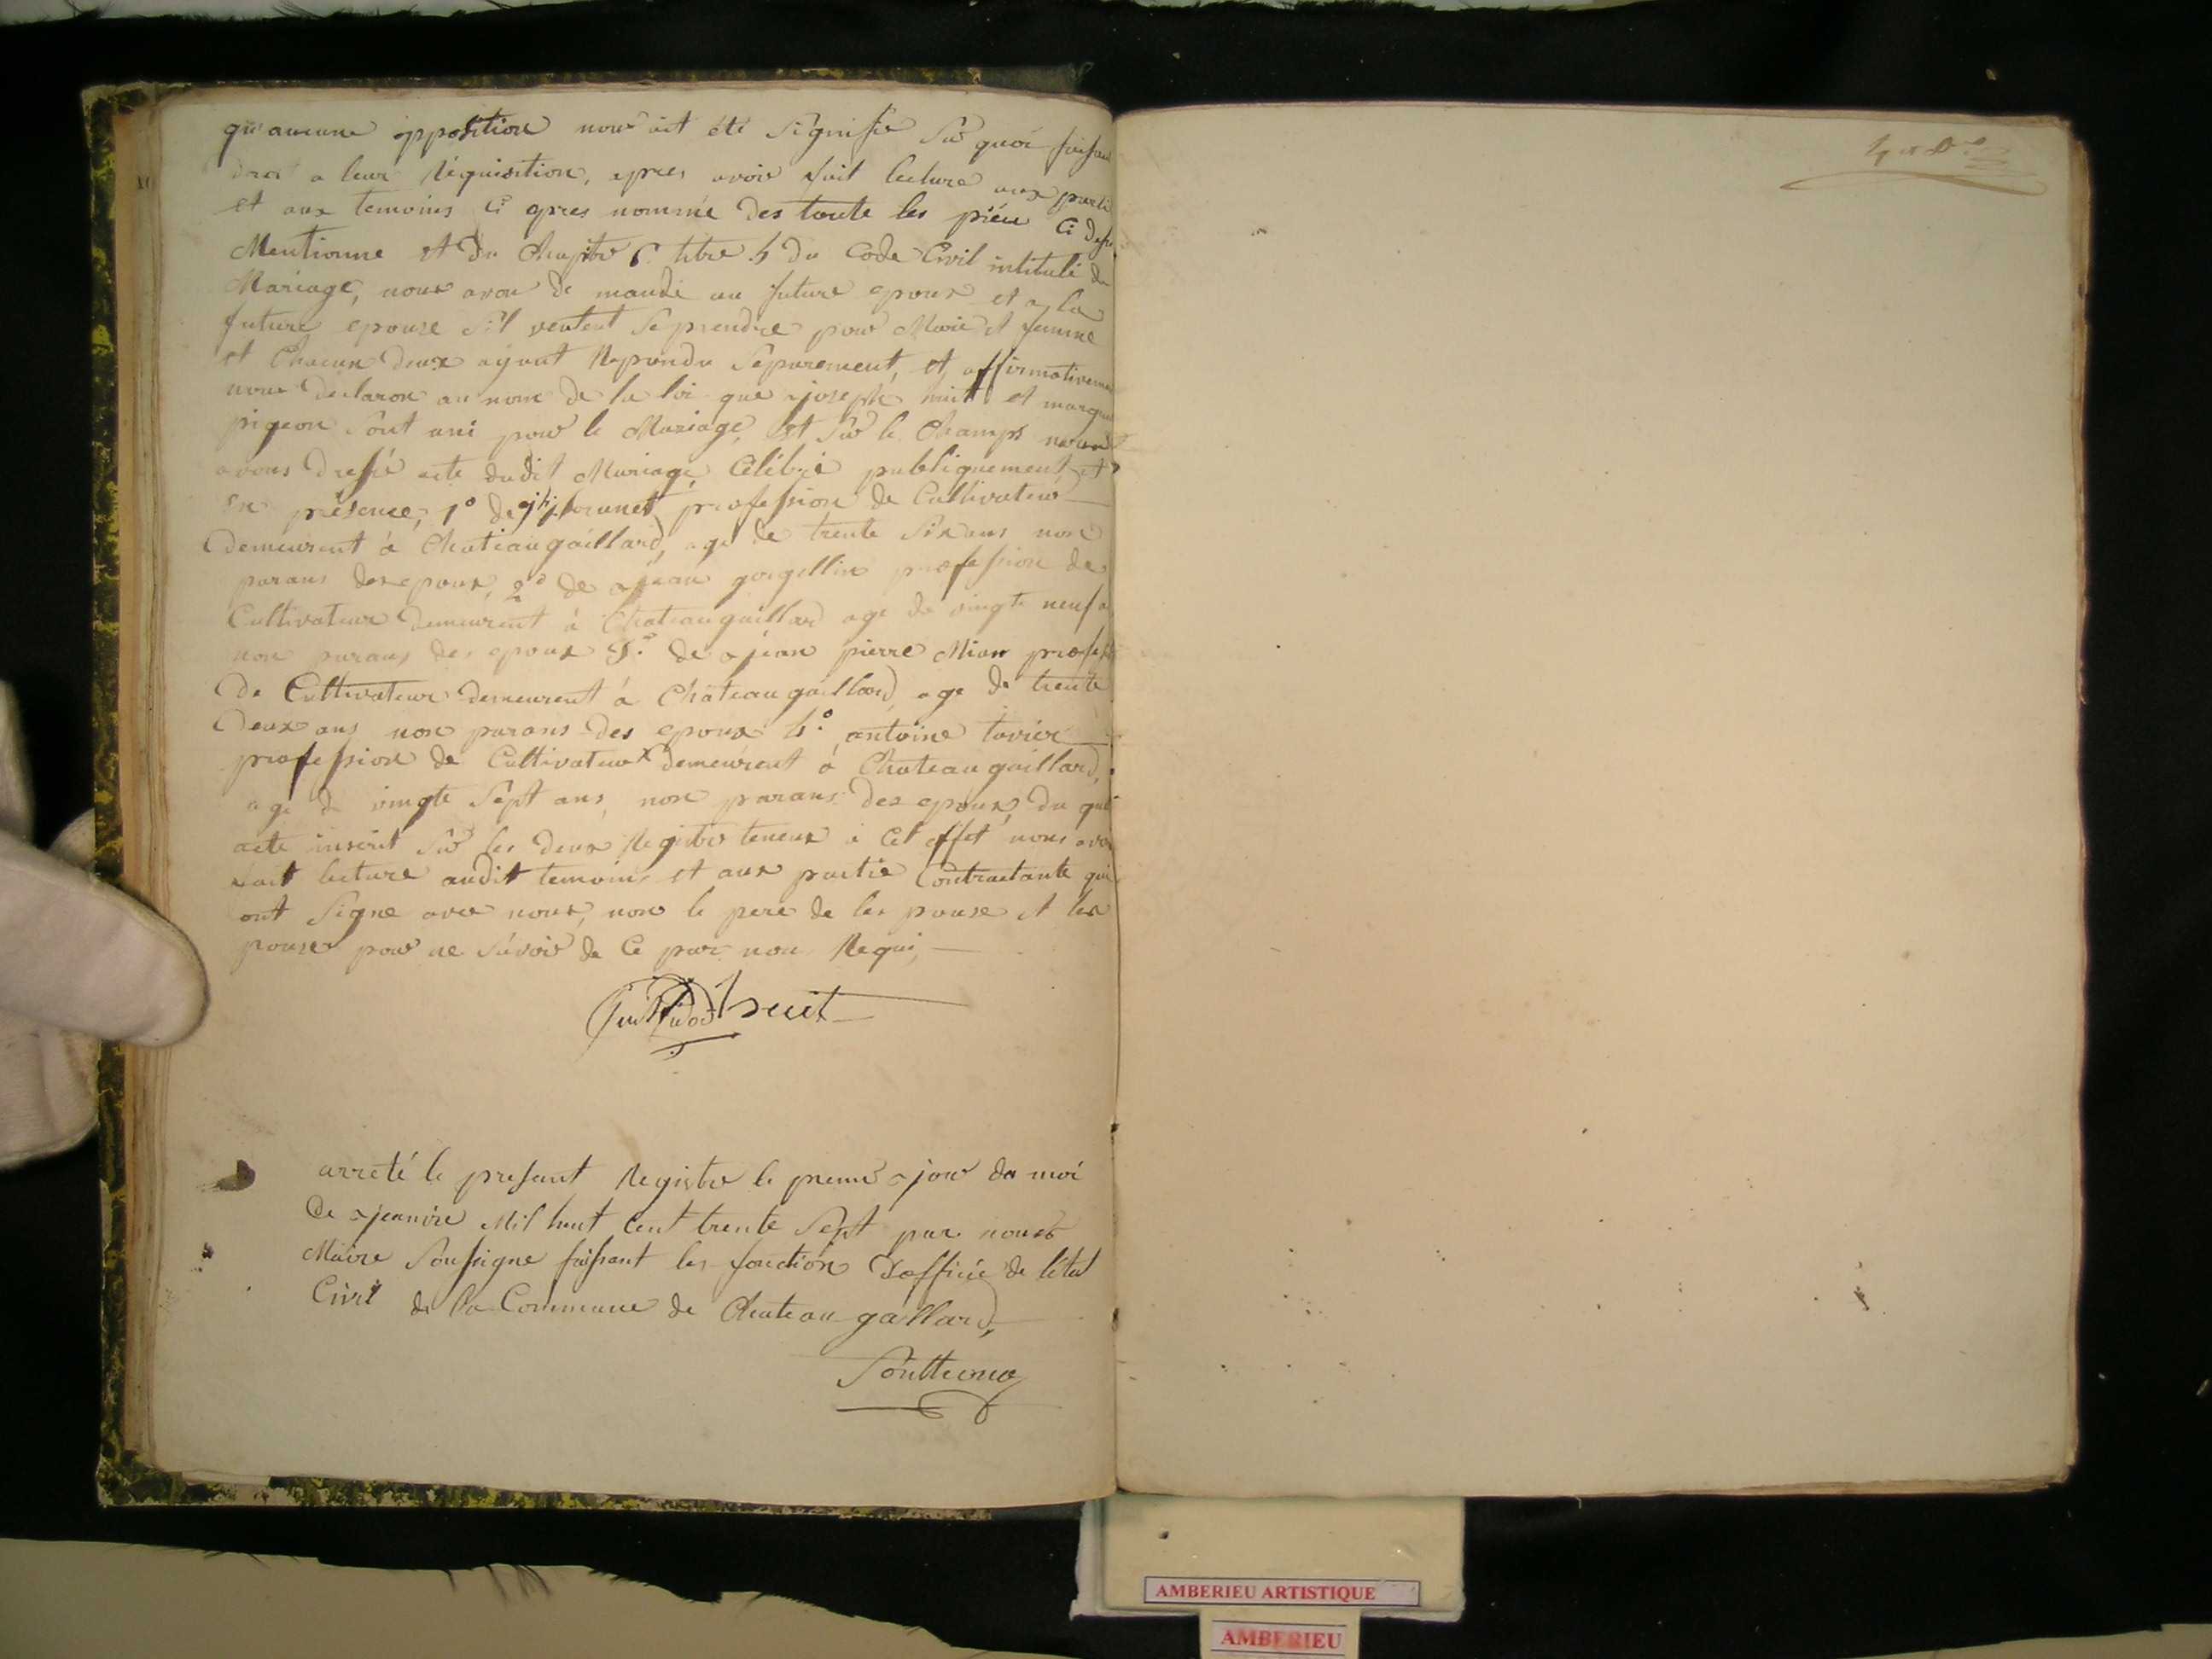 qu'aucune opposition nous ait été signifie sur quoi faisant
droi a leur réquisition, apres avoir fait lecture aux parti
et aux temoins ci apres nommée des toute les piéce ci desu
Mentionne et du Chapitre 6 titre 5 du Code Civil intitulé du
Mariage, nous avon de mandé au future epoux et a la
future epouse s'il veulent se prendre pour Marie et femme
et Chacun deux ayant Repondu Séparement, et affirmativemen
nous declaron au nom de la loi que joseph huit et margue
pigeon sont uni pour le Mariage, et sur le Champs nous
avons dressé acte dudit Mariage, Célébré publiquement et
en présence, 1º de brunet profession de Cultivateur
demeurent à Chateaugaillard, age de trente six ans non
parans des epoux, 2º de jean gorgellin profession de
Cultivateur demeurent à Chateaugaillard age de vingte neuf a
non parans des epoux 3º de jean pierre Mian profess
de Cultivateur demeurent à Chateaugaillard, age de trente
deux ans non parans des epoux 4º antoine tavier
profession de Cultivateur demeurent à Chateaugaillard,
age de vingte sept ans, non parans des epoux, du quel
acte inscrit sur les deux Registre teneux à cet effet nous avon
fait lecture audit temoins et aux partie Contractante qui
ont signe avec nous, non le pere de les pouse et les
pouse pour ne savoir de ce par nou Requi,
huit
arreté le present Registre le premie jour du moi
de jeanvie Mil huit Cent trente Sept par nous
Maire Soussigne faissant les fonction Doffície de l'état
Civil de la Commune de Chateau gallard,
4 et D
AMBERIEU ARTISTIQUE
AMBERIEU